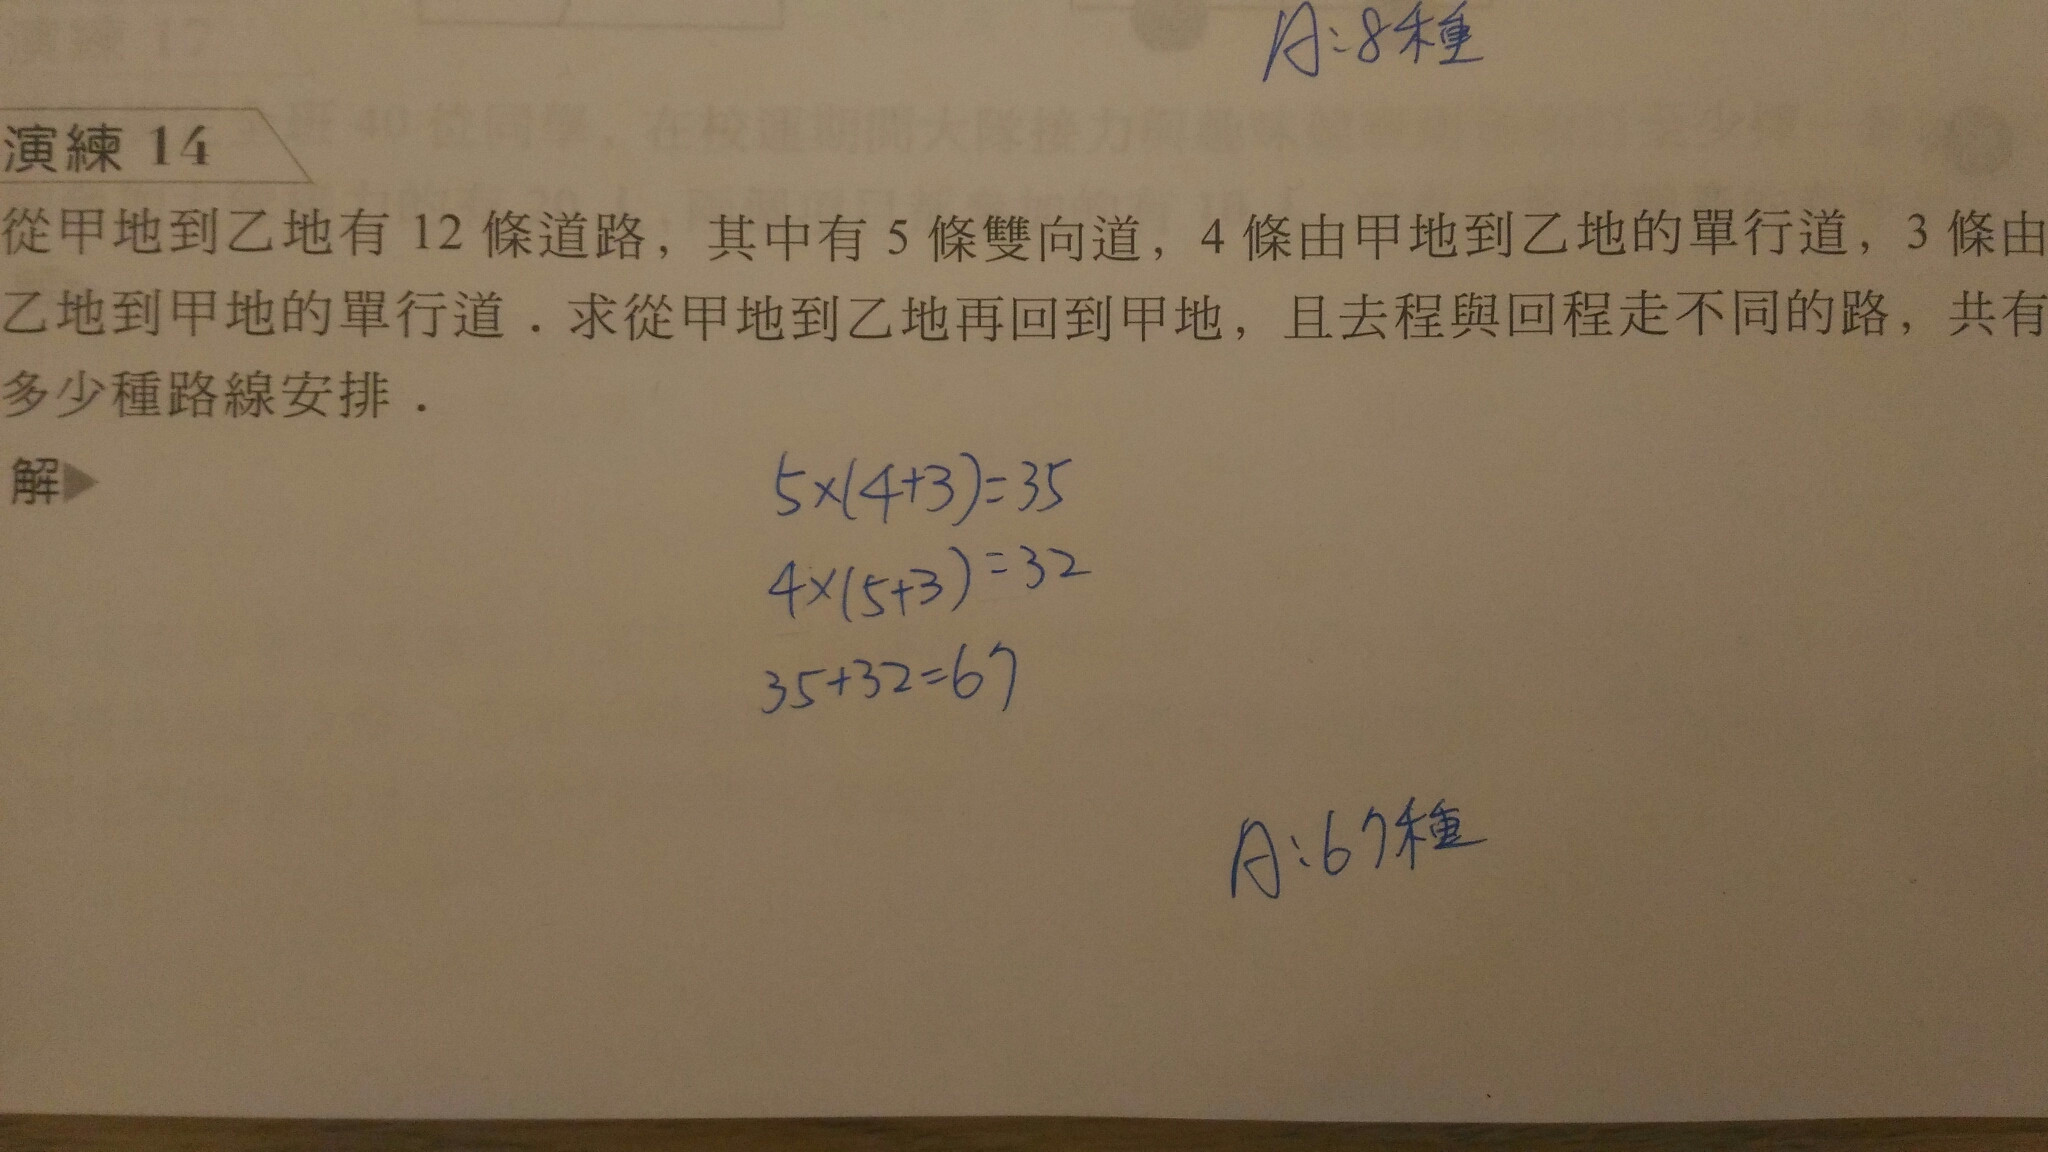 A:8種
演練 17
全班 40 位同學,在校運期間大隊接力與趣味競賽
演練 14
從甲地到乙地有 12 條道路,其中有 5 條雙向道,4 條由甲地到乙地的單行道,3 條由
乙地到甲地的單行道.求從甲地到乙地再回到甲地,且去程與回程走不同的路,共有
多少種路線安排.
解▶
5×(4+3)=35
4×(5+3)=32
35+32=67
A:67種